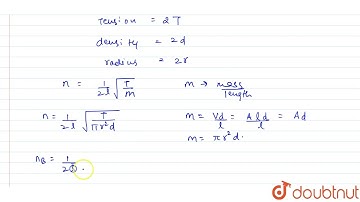 Tension = 2T
density = 2d
radius = 2r
n = 1/2l √T/m m → mass/length
n = 1/2l √T/πr²d m = Vd/l = Ald/l = Ad
m = πr²d.
n_B = 1/2
doubtnut